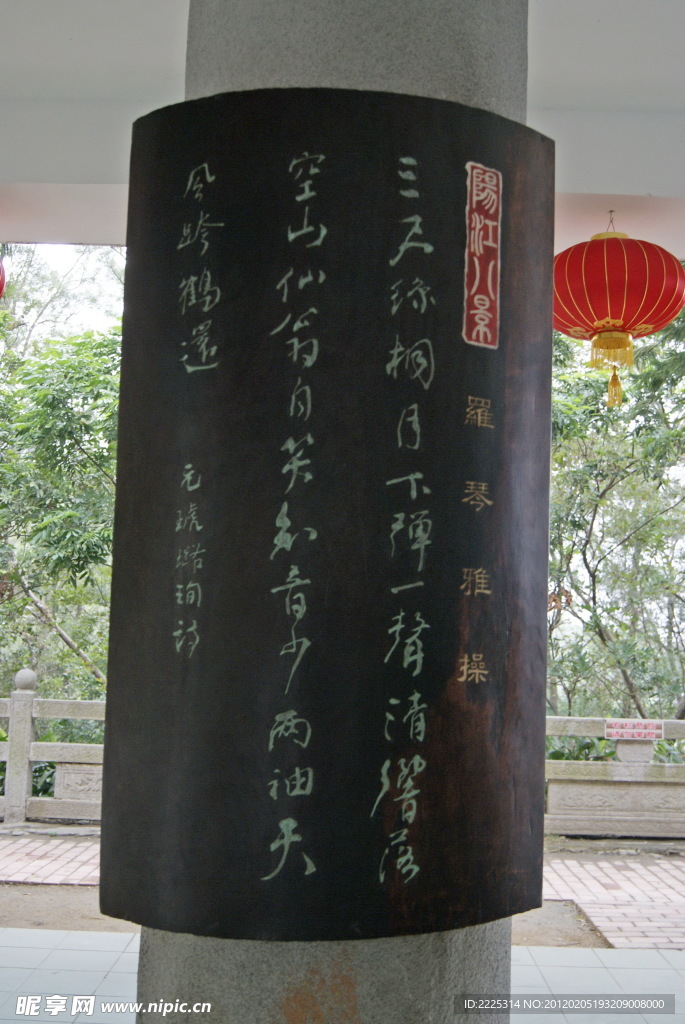 陽江八景
羅琴雅操
三尺絲桐月下彈一聲清響落
空山仙翁自笑知音少两袖天
風跨鶴還
元琥璐珣詩
昵享网 www.nipic.cn
ID:2225314 NO:20120205193209008000